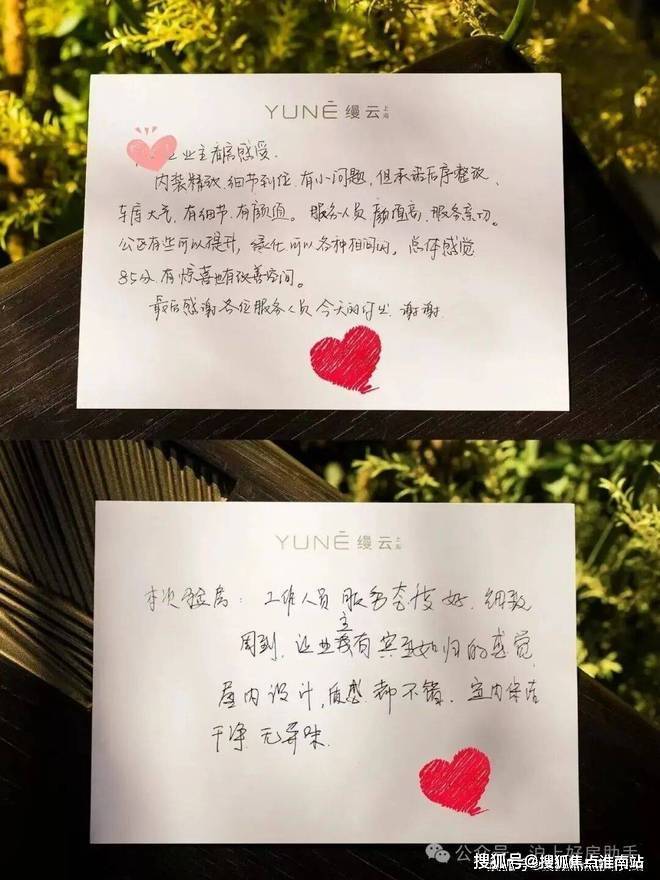 YUNĒ 缦云 上海
业主看房感受.
内装精致.细节到位.有小问题.但承诺后序整改、
车库大气.有细节.有颜值。服务人员颜值高.服务亲切。
公区有些可以提升,绿化可以各种相间的。总体感觉
85分.有惊喜也有改善空间。
最后感谢各位服务人员今天的付出.谢谢.
YUNĒ 缦云 上海
本次验房:工作人员服务态度好.细致
周到.让业主有宾至如归的感觉
屋内设计,质感都不错.室内保洁
干净.无异味.
公众号·沪上好房助手
搜狐号@搜狐焦点淮南站